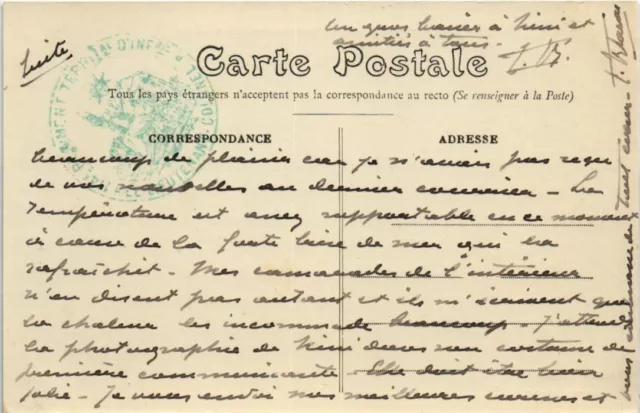 (suite)
Un gros baiser à Nini et
amitiés à tous.
Carte Postale
Tous les pays étrangers n'acceptent pas la correspondance au recto (Se renseigner à la Poste)
CORRESPONDANCE
ADRESSE
beaucoup de plaisir car je n'avais pas reçu
de vos nouvelles au dernier courrier - La
température est assez supportable en ce moment
à cause de la forte brise de mer qui la
rafraîchit - Mes camarades de l'intérieur
n'en disent pas autant et ils m'écrivent que
la chaleur les incommode beaucoup - J'attends
la photographie de Nini dans son costume de
première communiante - Elle doit être bien
jolie - Je vous envoie mes meilleures caresses et